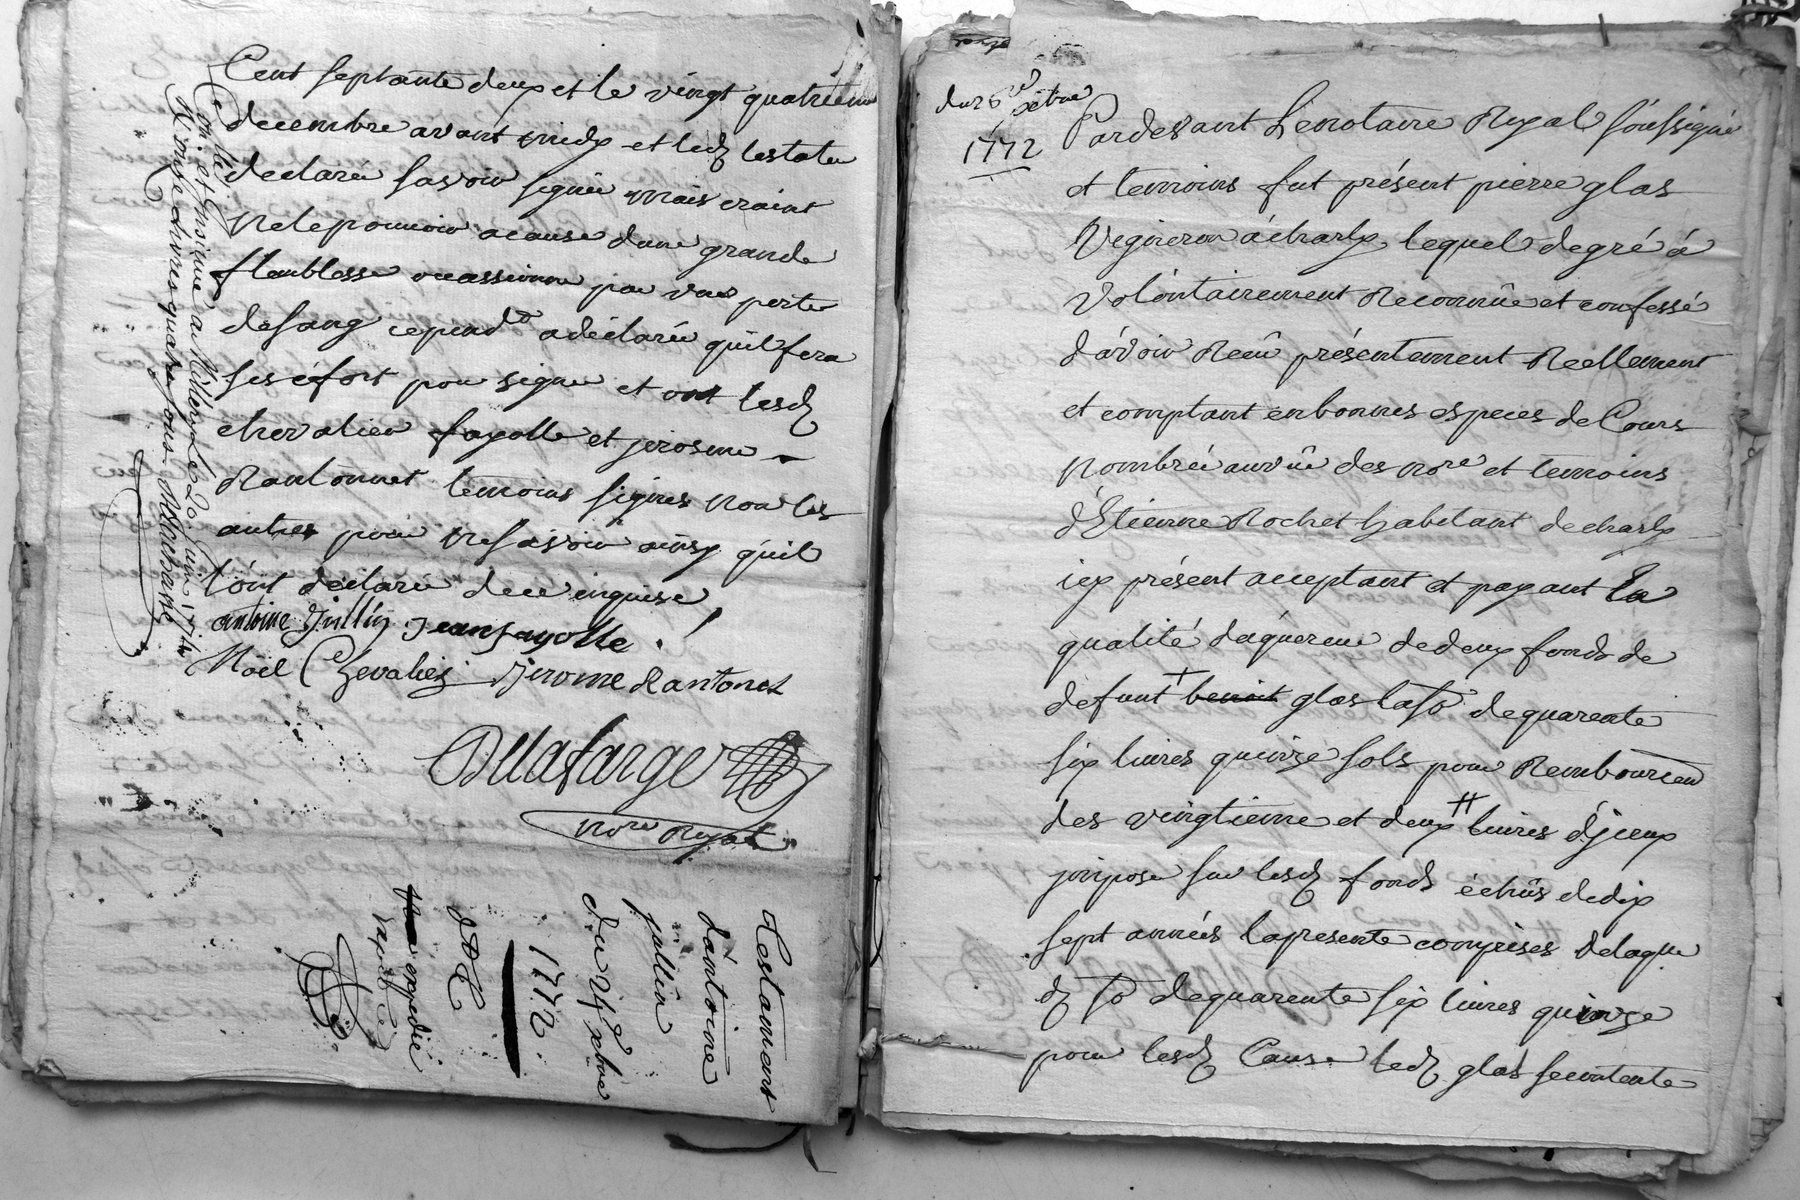 Cent septante deux et le vingt quatrieme
decembre avant midy et led testateu
declaré savoir signer mais craint
ne le pouvoir acause dune grande
floiblesse occassionné par une perte
de sang cepend.t a déclaré quil fera
ses éfort pour signer et ont lesd
chevalier fayolle et jerosme
Rantonnet temoins signés non les
autres pour ne savoir ainsy quil
l'ont declaré de ce enquise
antoine Jullin Jean fayolle
Nöel Chevalier Jerome Rantonet
Dellafarge
no.re Royal
Con.lé et insinué a Millery le 20 juin 1774
R. onze livres quatre sous
Testament
d'antoine
jullin
du 24 xbre
1772.
expedié
Du 26 xbre
1772
Pardevant Le notaire Royal soussigné
et temoins fut présent pierre glas
Vigneron à charly lequel de gré à
volontairement Reconnüe et confessé
d'avoir Reçû présentement Reellement
et comptant en bonnes especes de Cours
Nombrée au vûe des no.re et temoins
d'Etienne Rochet habitant de charly
icy présent acceptant et payant En
qualité daquereur de deux fonds de
defunt benoit glas la so. de quarente
six livres quinze sols pour Remboursem
des vingtieme et deux livres d'jceux
jmposé sur lesd fonds échûs de dix
sept années la presente comprises de laque
d so. de quarente six livres quinze
pour lesd Cause led glas se contente